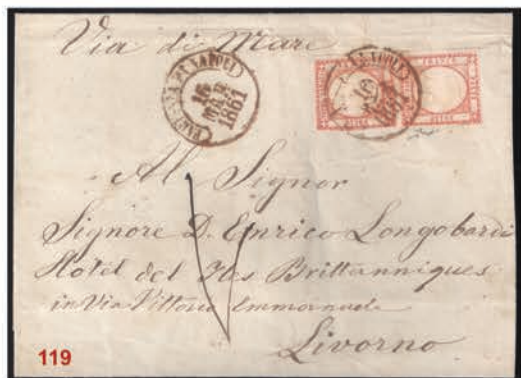 Via di Mare
PARTENZA DA NAPOLI
16
MAR
1861
NAPOLI
16
1861
FRANCO BOLLO
FRANCO
Al Signor
Signore D. Enrico Longobardi
Hotel del Iles Brittanniques
in Via Vittorio Emmanuele
Livorno
119